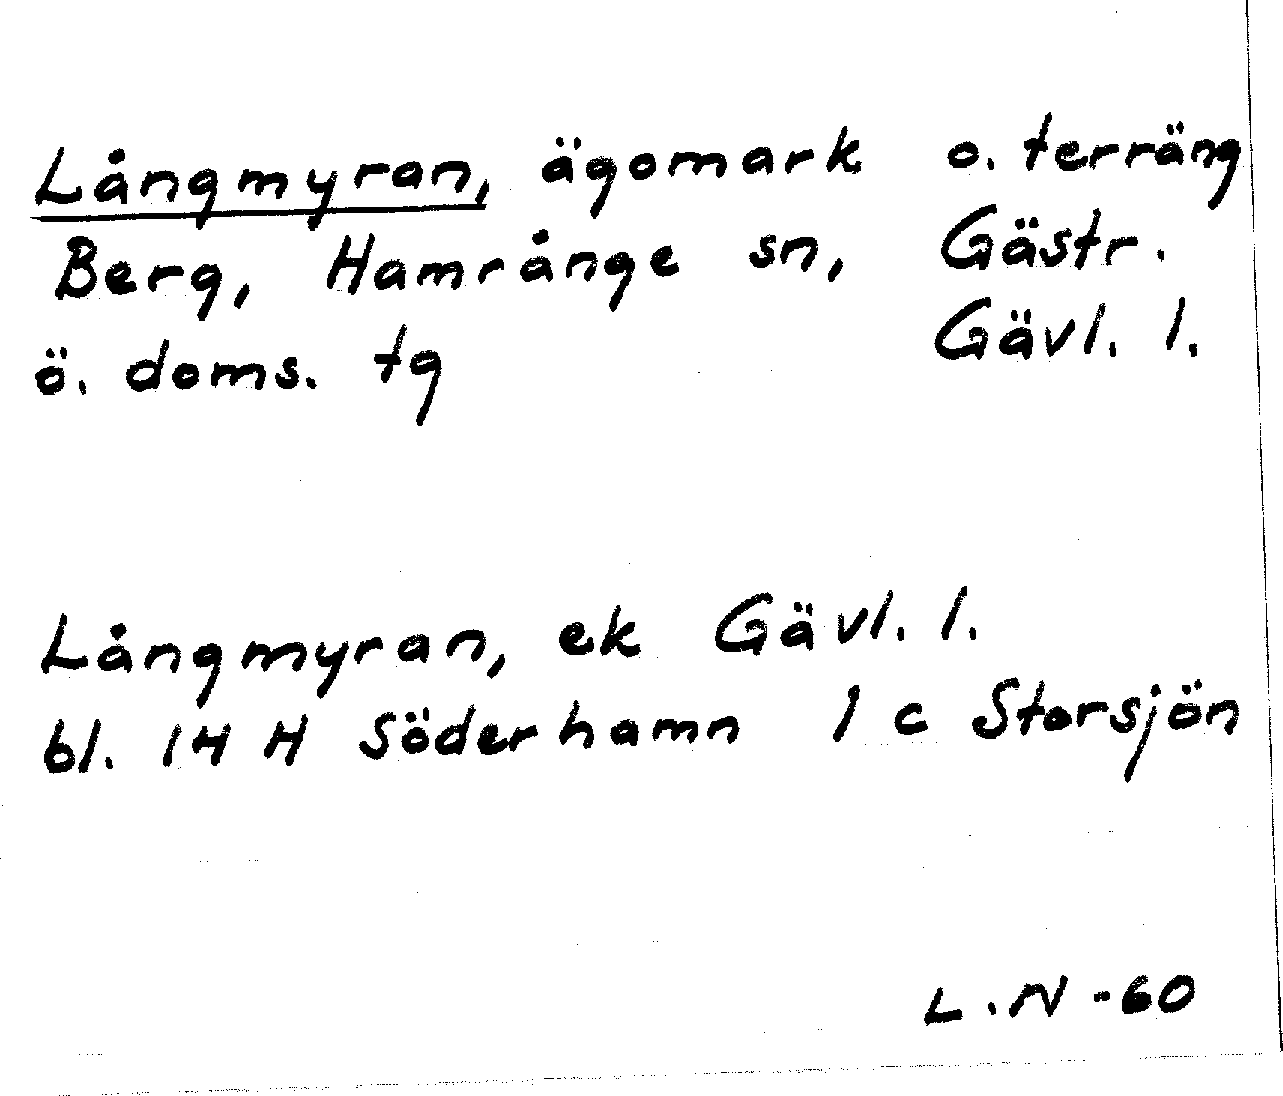 Långmyran, ägomark o. terräng
Berg, Hamrånge sn, Gästr.
ö. doms. tg Gävl. l.
Långmyran, ek Gävl. l.
bl. 14 H Söderhamn 1 c Storsjön
L.N -60